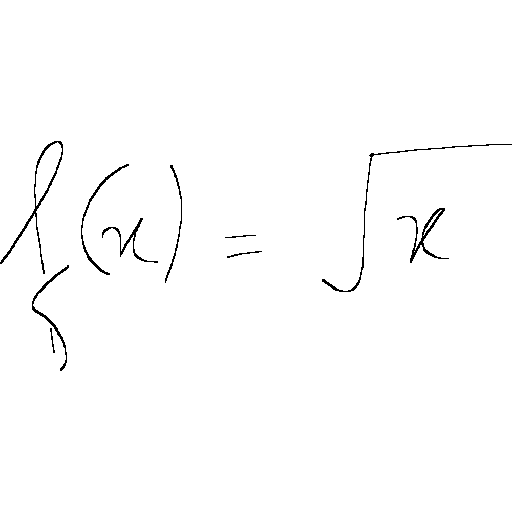 f(x) = √x